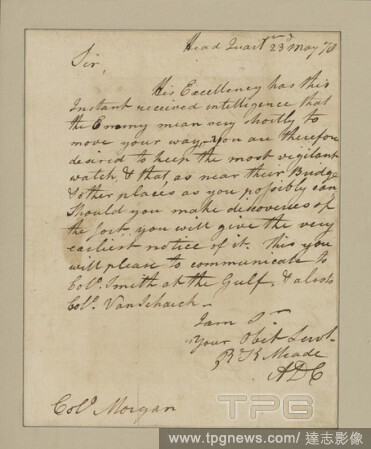 Head Quartrs 23d May 78
Sir,
His Excellency has this
Instant received intelligence that
the Enemy mean very shortly to
move your way, you are therefore
desired to keep the most vigilant
watch & that as near their Bridge
& other places as you possibly can
Should you make discoveries of
the sort, you will give the very
earliest notice of it. this you
will please to communicate to
Colo. Smith at the Gulf, & also to
Colo. VanSchaick—
I am Sr
Your Obit Servt.
R K Meade
ADC
Colo. Morgan
TPG
www.tpgnews.com | 達志影像